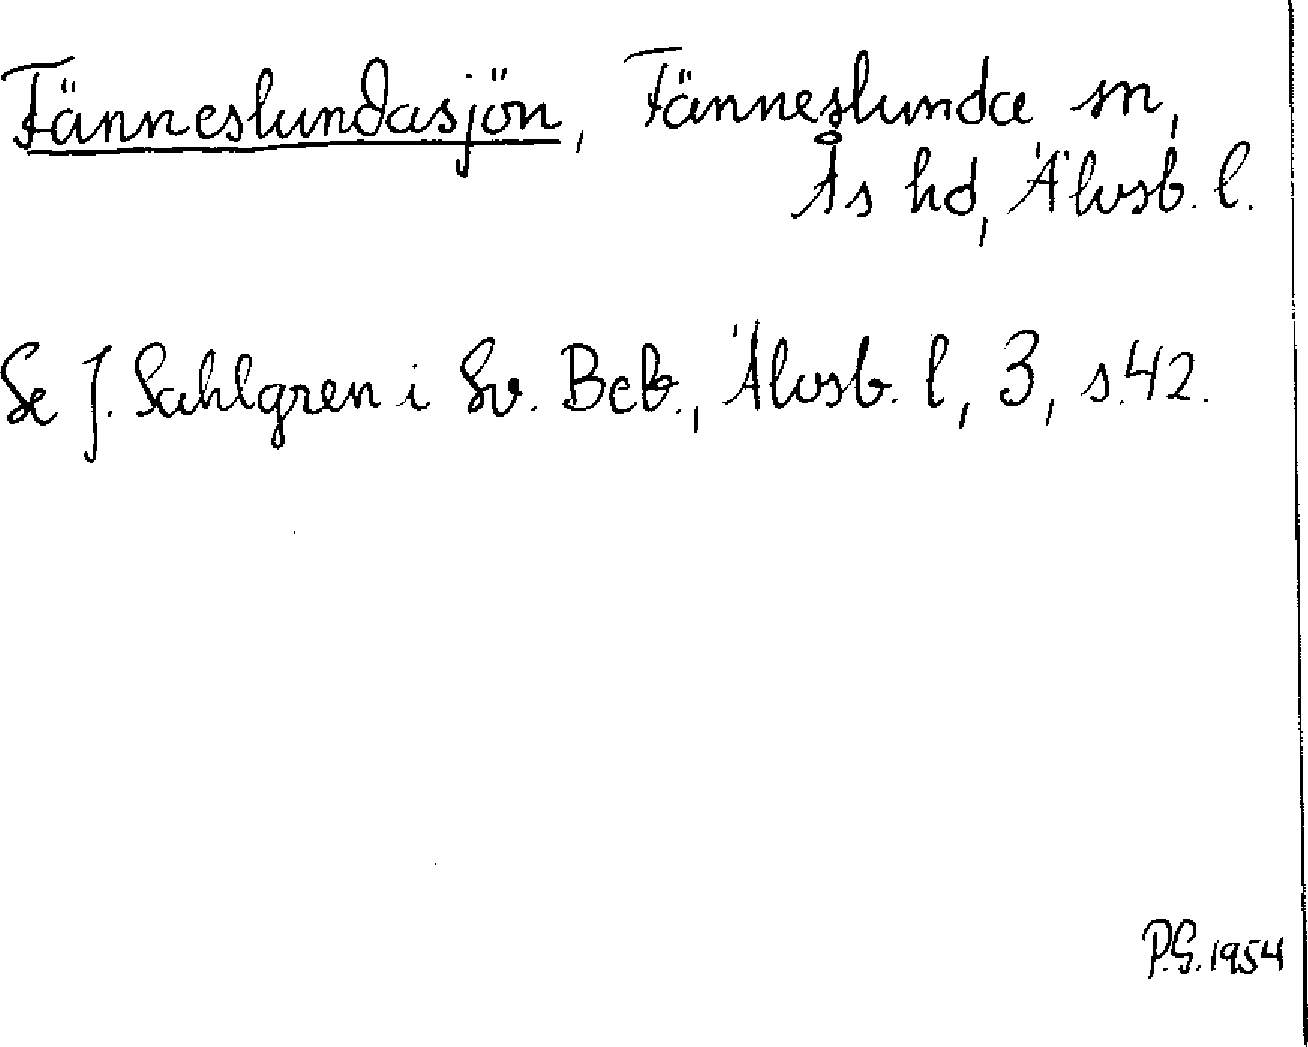 Fänneslundasjön, Fänneslunda sn,
Ås hd, Älvsb. l.
Se J. Sahlgren i Sv. Beb., Älvsb. l, 3, s. 42.
P.G. 1954